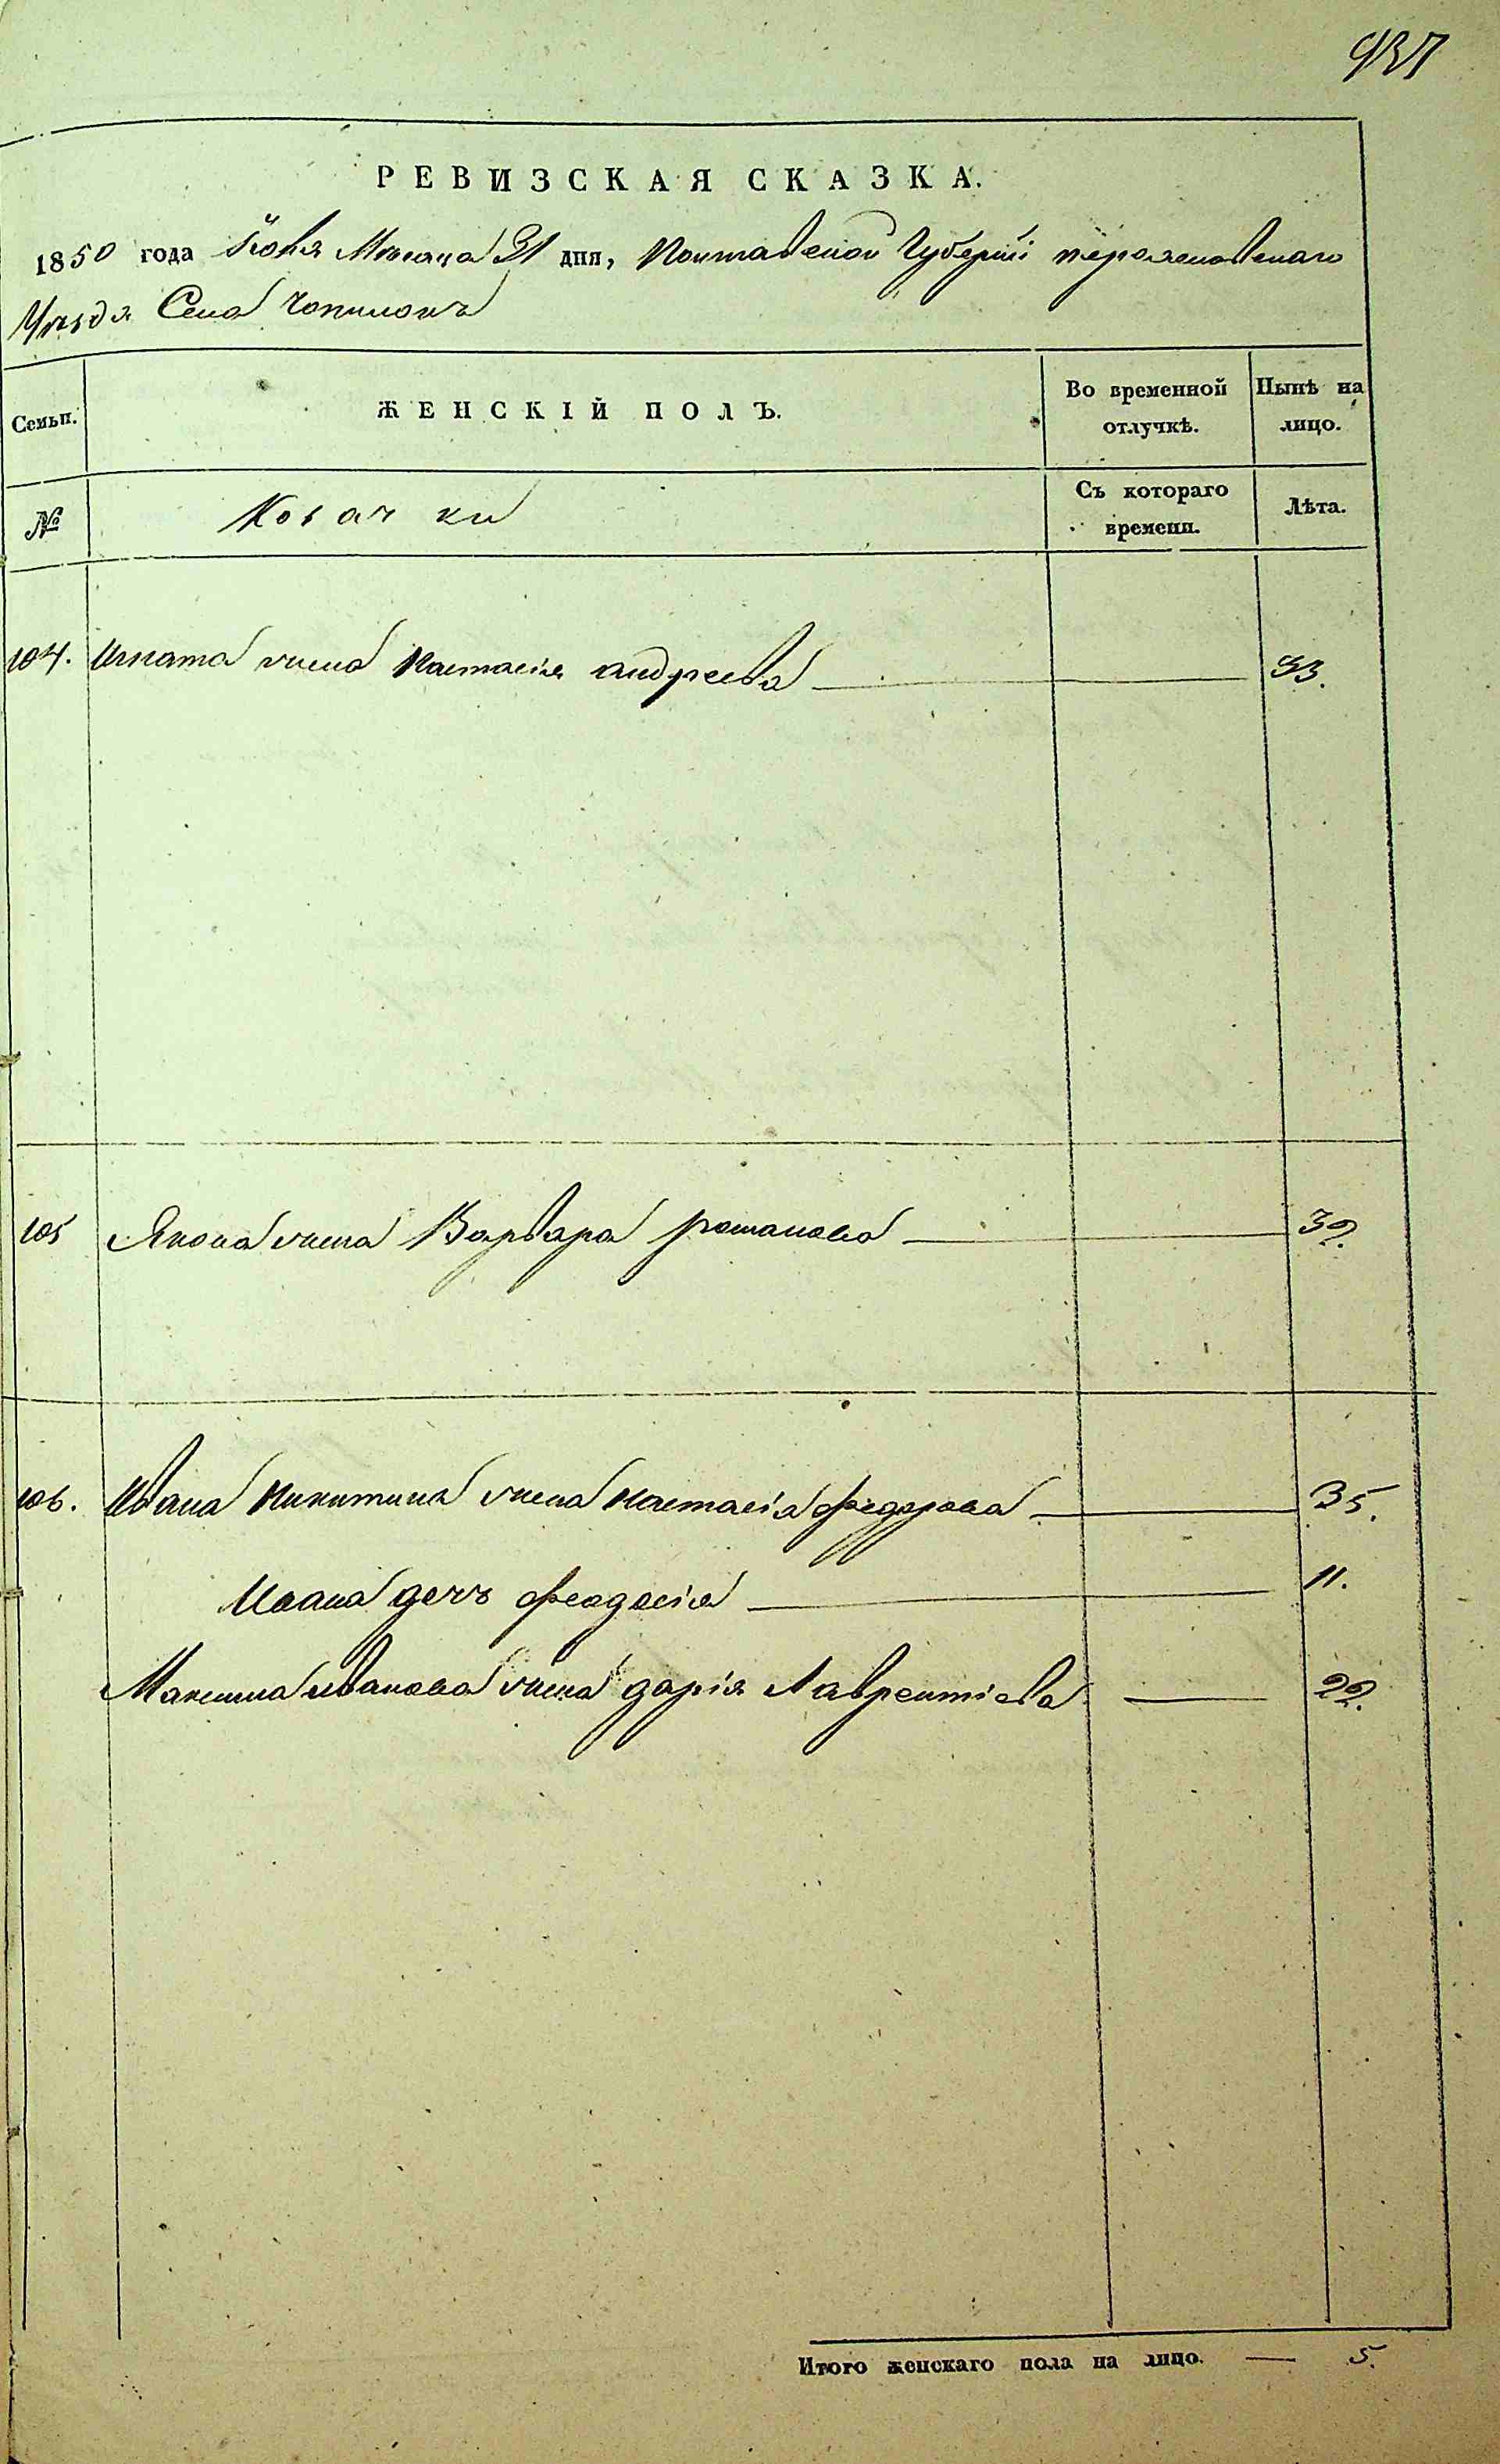 937
РЕВИЗСКАЯ СКАЗКА.
1850 года Месяца 31 дня, Полтавской Губернии переяславскаго
Уезда Села Чопилокъ
Семьи. ЖЕНСКІЙ ПОЛЪ. Во временной отлучкѣ. Нынѣ на лицо.
№ Козачки Съ котораго времени. Лѣта.
104. Игната жена Настасія андреева 53.
105 Якова жена Варвара романова 32.
106. Ивана Никитина жена Настасія федорова 35.
Ивана дочь феодосія 11.
Максима иванова жена дарія Лаврентіева 22.
Итого женскаго пола на лицо. 5.